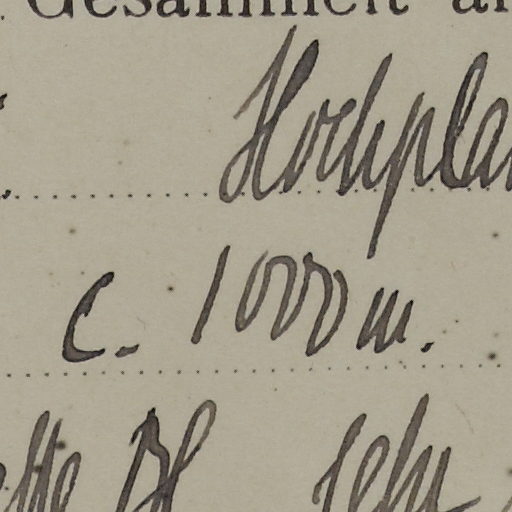 Gesammelt
Hochpla
c. 1000 m.
sehr